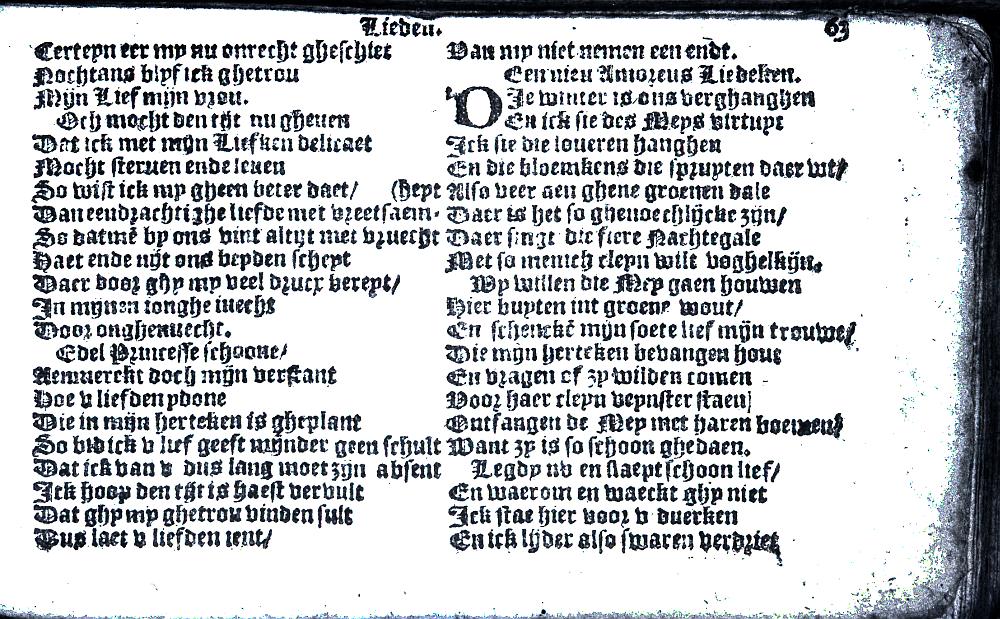 Lieden. 63
Certeyn eer my nu onrecht gheschiet
Nochtans blyf ick ghetrou
Mijn Lief mijn vrou.
Och mocht den tijt nu gheuen
Dat ick met mijn Liefken delicaet
Mocht steruen ende leuen
So wist ick my gheen beter daet/
Dan eendrachtighe liefde met vreetsaem- (heyt
So datmē by ons vint altijt met vruecht
Haet ende nijt ons beyden schept
Daer door ghy my veel drucx bereyt/
In mijnen ionghe iuecht
Door onghenuecht.
Edel Princesse schoone/
Aenmerckt doch mijn verstant
Hoe v liefden ydone
Die in mijn herteken is gheplant
So bid ick v lief geeft mijnder geen schult
Dat ick van v dus lang moet zijn absent
Ick hoop den tijt is haest vervult
Dat ghy my ghetrou vinden sult
Dus laet v liefden ient/
Van my niet nemen een endt.
Een nieu Amoreus Liedeken.
DIe winter is ons verghanghen
En ick sie des Meys virtuyt
Ick sie die loueren hanghen
En die bloemkens die spruyten daer uit/
Also veer aen ghene groenen dale
Daer is het so ghenoechlijcke zijn/
Daer singt die fiere Nachtegale
Met so menich cleyn wilt voghelkijn.
Wy willen die Mey gaen houwen
Hier buyten int groene wout/
En schenckē mijn soete lief mijn trouwe/
Die mijn herteken bevangen hout
En vragen of zy wilden comen
Voor haer cleyn veynster staen/
Ontfangen de Mey met haren boemen/
Want zy is so schoon ghedaen.
Legdy nv en slaept schoon lief/
En waerom en waeckt ghy niet
Ick stae hier voor v duerken
En ick lijder also swaren verdriet